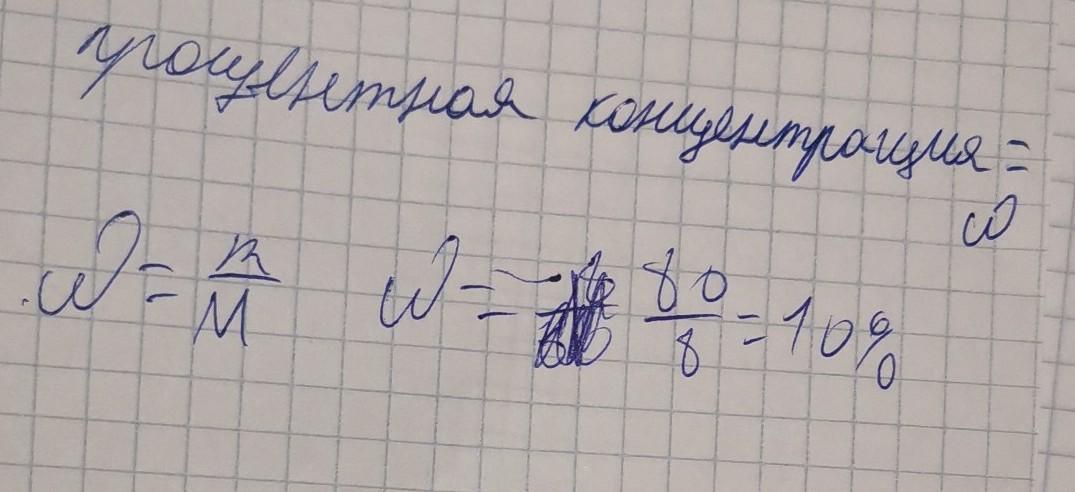 процентная концентрация =
ω
ω = m/M ω = 80/8 = 10%